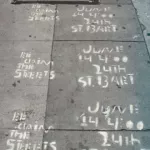 RE
CLAIM
THE
STREETS
JUNE
14 4:00
24th
ST. BART
RE
CLAIM
THE
STREETS
JUNE
14 4:00
24th
ST. BART
RE
CLAIM
THE
STREETS
JUNE
14 4:00
24th